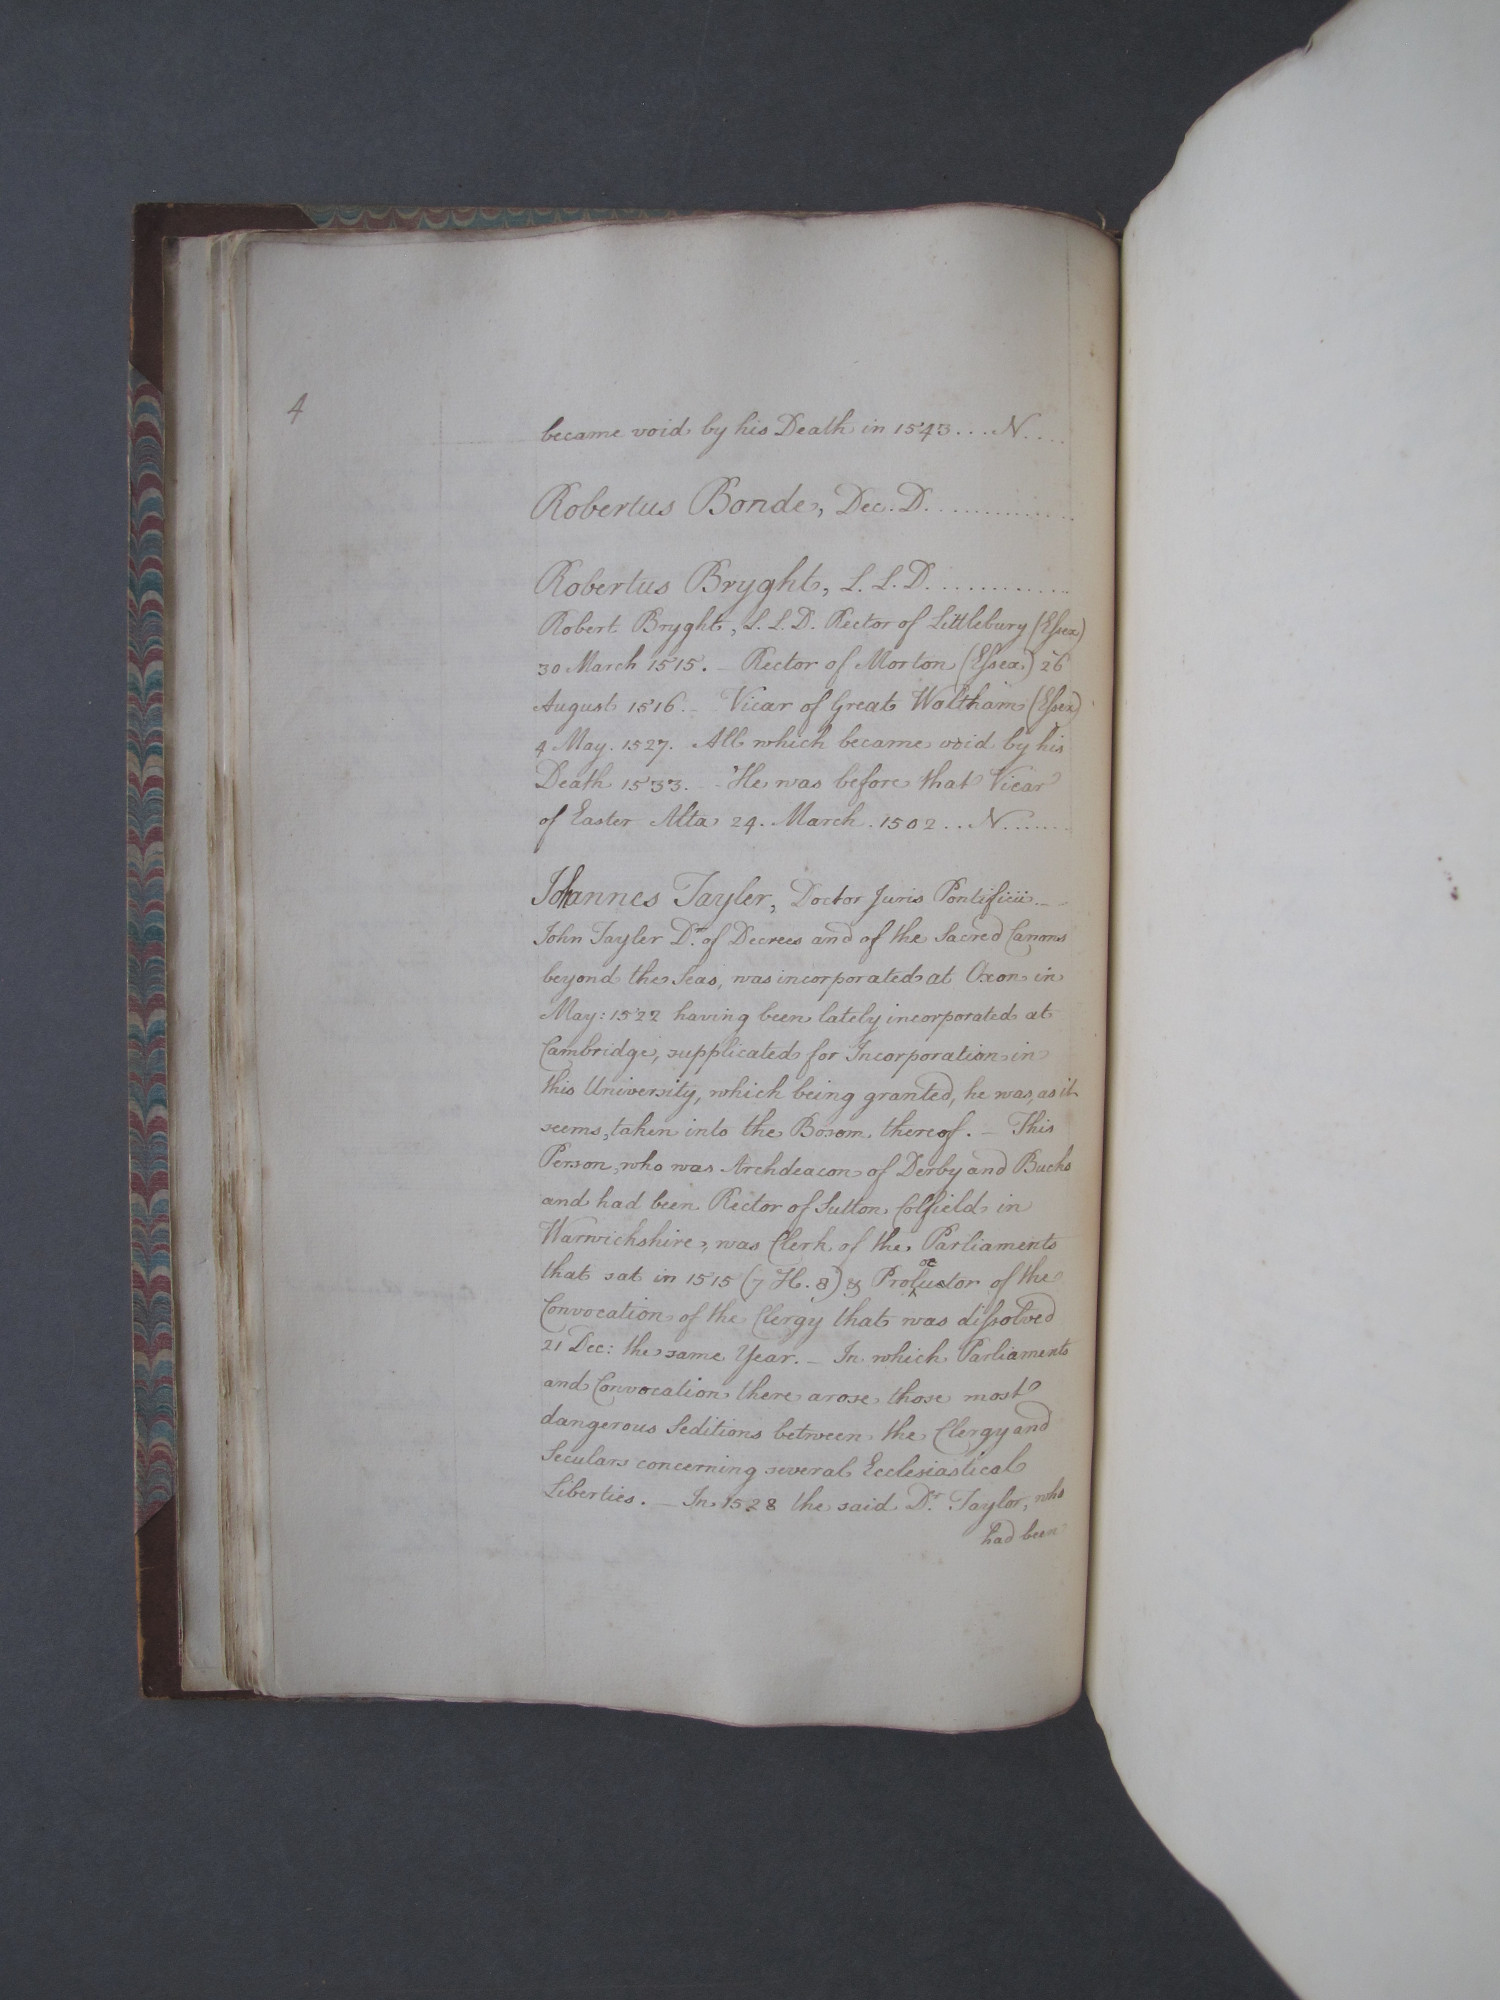 4
became void by his Death in 1543 ... N ....
Robertus Bonde, Dec. D. .............
Robertus Bryght, L. L. D. ............
Robert Bryght, L. L. D. Rector of Littlebury (Essex)
30 March 1515. – Rector of Morton (Essex) 26
August 1516. – Vicar of Great Waltham (Essex)
4 May. 1527. All which became void by his
Death 1533. – He was before that Vicar
of Easter Alta 24. March. 1502 .. N .......
Johannes Tayler, Doctor Juris Pontificii. – –
John Tayler Dr. of Decrees and of the Sacred Canons
beyond the Seas, was incorporated at Oxon in
May: 1522 having been lately incorporated at
Cambridge, supplicated for Incorporation in
this University, which being granted, he was, as it
seems, taken into the Bosom thereof. – This
Person, who was Archdeacon of Derby and Bucks
and had been Rector of Sutton Colfield in
Warwickshire, was Clerk of the Parliaments
that sat in 1515 (7 H. 8) & Prolocutor of the
Convocation of the Clergy that was dissolved
21 Dec: the same Year. – In which Parliaments
and Convocation there arose those most
dangerous Seditions between the Clergy and
Seculars concerning several Ecclesiastical
Liberties. – In 1528 the said Dr. Taylor, who
had been